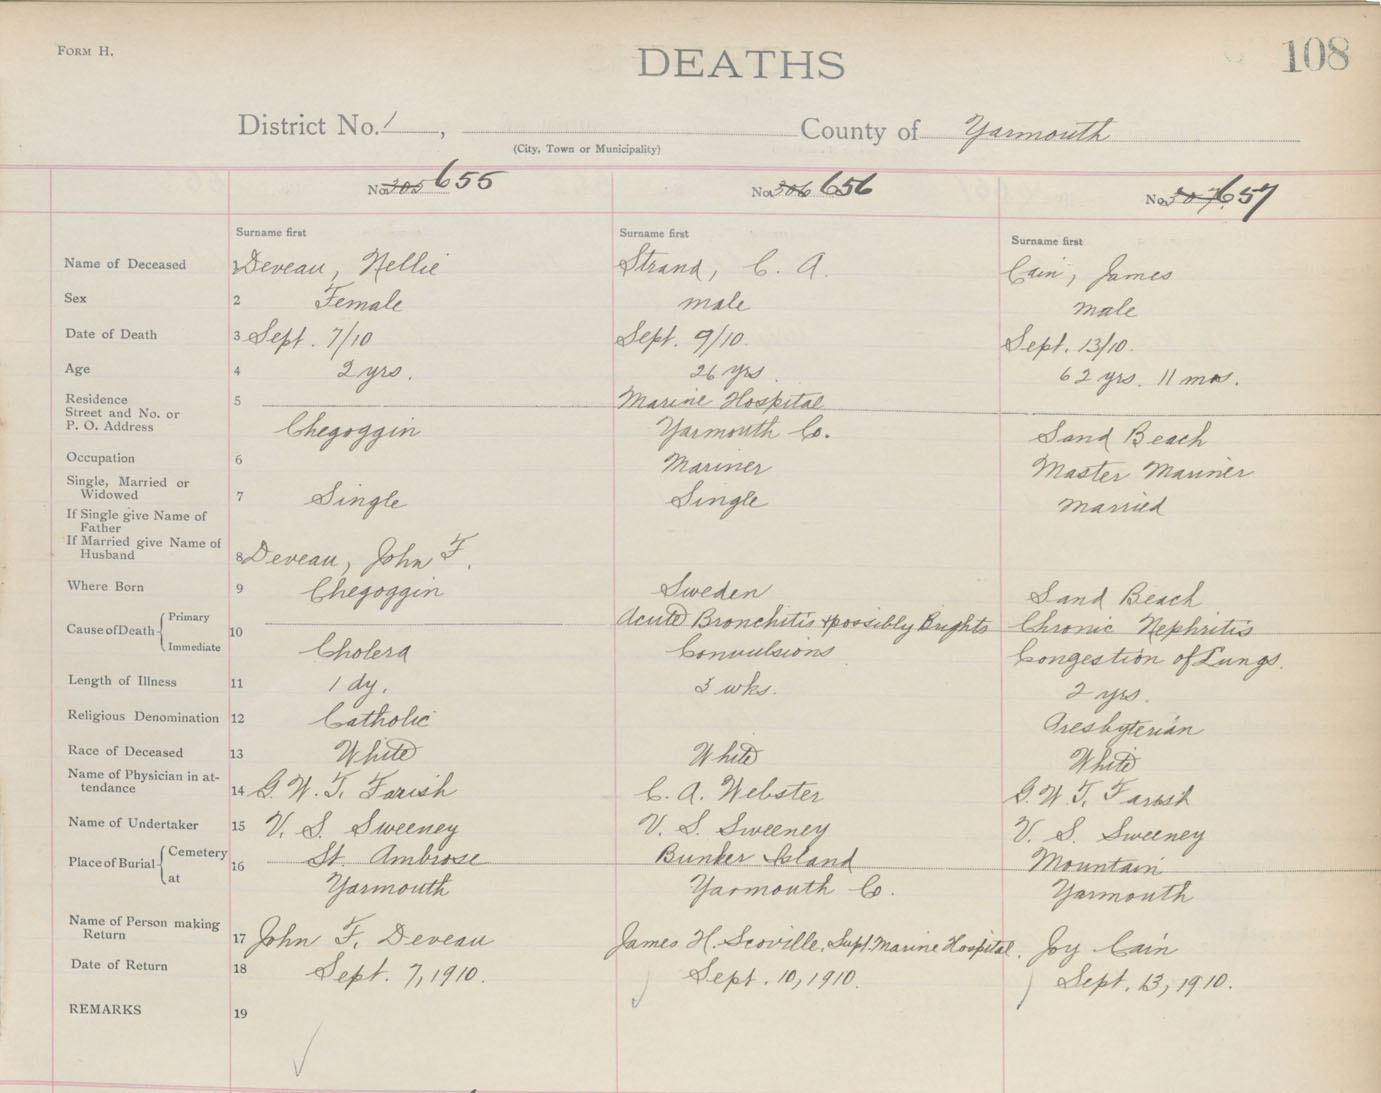 FORM H.
DEATHS
108
District No. 1, County of Yarmouth
(City, Town or Municipality)
No. 305 655 No. 306 656 No. 307 657
Surname first Surname first Surname first
Name of Deceased 1 Deveau, Nellie Strand, C. A. Cain, James
Sex 2 Female male male
Date of Death 3 Sept. 7/10 Sept. 9/10. Sept. 13/10.
Age 4 2 yrs. 26 yrs. 62 yrs. 11 mos.
Residence 5 Marine Hospital
Street and No. or
P. O. Address Chegoggin Yarmouth Co. Sand Beach
Occupation 6 Mariner Master Mariner
Single, Married or
Widowed 7 Single Single married
If Single give Name of
Father
If Married give Name of
Husband 8 Deveau, John F.
Where Born 9 Chegoggin Sweden Sand Beach
Cause of Death Primary 10 Acute Bronchitis & possibly Brights Chronic Nephritis
Immediate Cholera Convulsions Congestion of Lungs.
Length of Illness 11 1 dy. 3 wks. 2 yrs.
Religious Denomination 12 Catholic Presbyterian
Race of Deceased 13 White White White
Name of Physician in at-
tendance 14 G. W. T. Farish C. A. Webster G. W. T. Farish
Name of Undertaker 15 V. S. Sweeney V. S. Sweeney V. S. Sweeney
Place of Burial Cemetery 16 St. Ambrose Bunker Island Mountain
at Yarmouth Yarmouth Co. Yarmouth
Name of Person making
Return 17 John F. Deveau James H. Scoville, Supt. Marine Hospital. Joy Cain
Date of Return 18 Sept. 7, 1910. Sept. 10, 1910. Sept. 13, 1910.
REMARKS 19